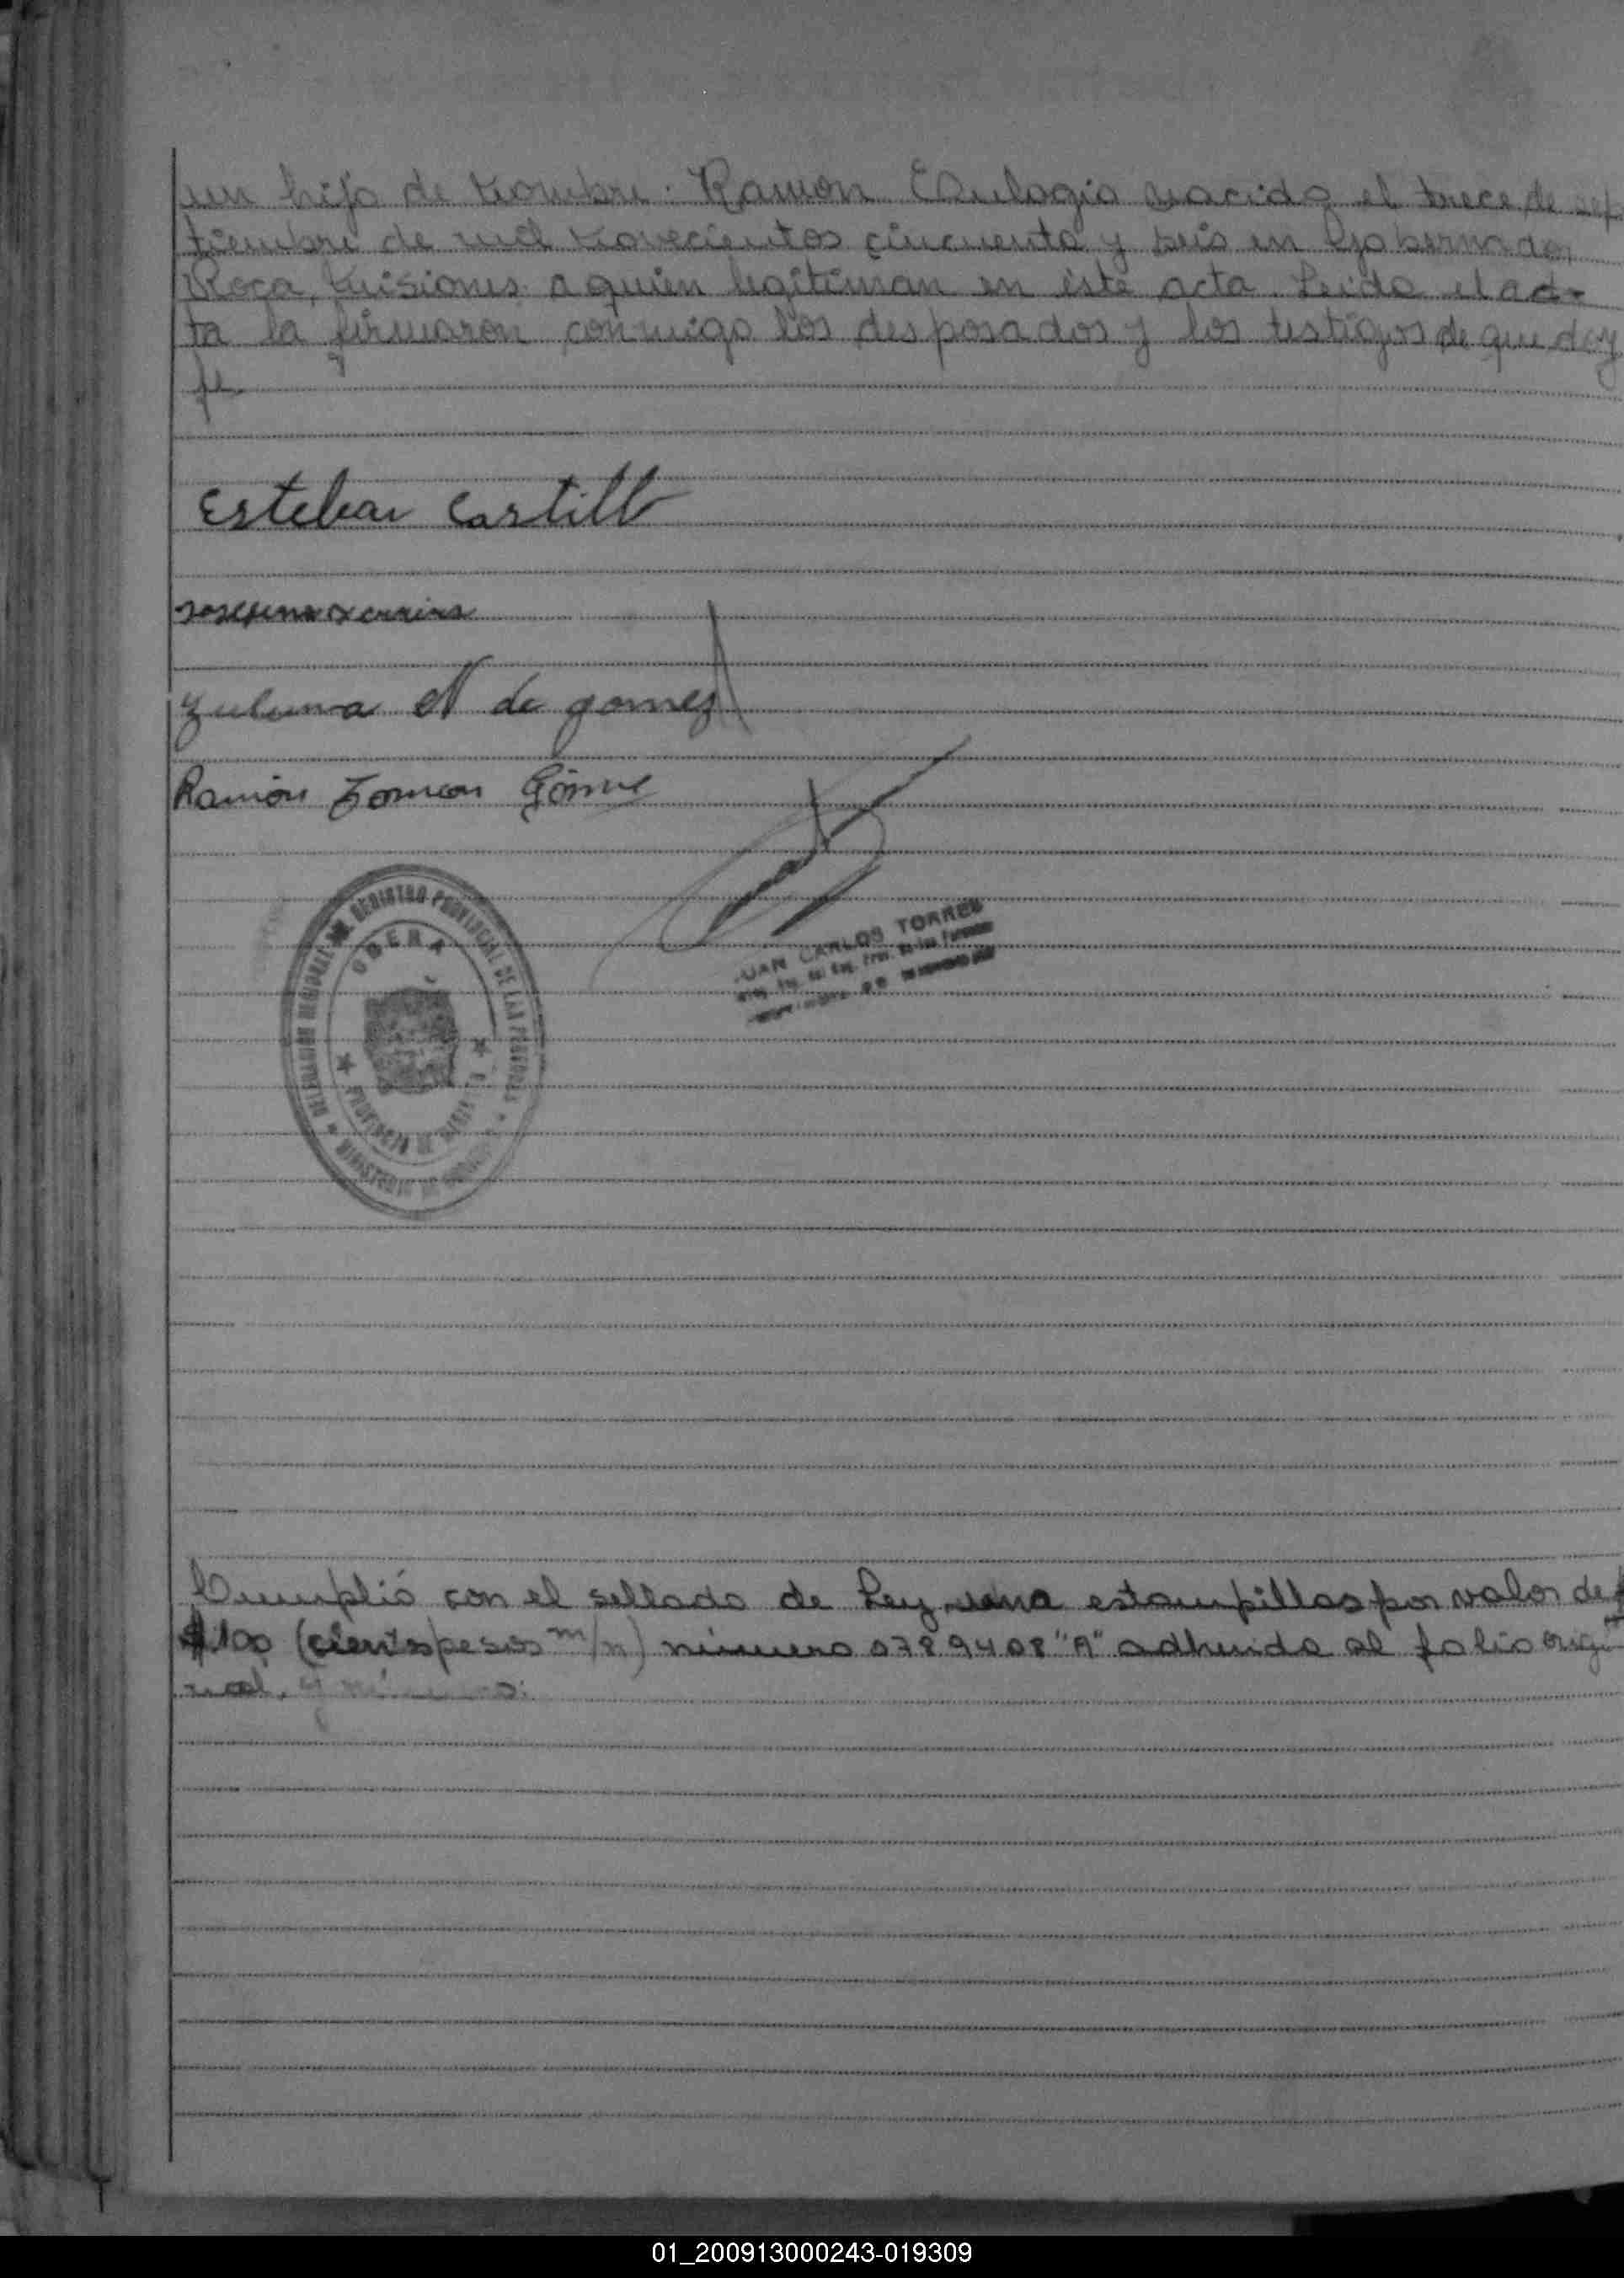 un hijo de nombre: Ramon Eulogio nacido el trece de sep
tiembre de mil novecientos cincuenta y seis en Gobernador
Roca, Misiones a quien legitiman en éste acta. Leida el ac-
ta la firmaron conmigo los desposados y los testigos de que doy
fe
Esteban Castillo
Zulema N de gomez
Ramón Gómez
JUAN CARLOS TORRES
DELEGACION REGIONAL DEL REGISTRO PROVINCIAL DE LAS PERSONAS
OBERA
PROVINCIA DE
MINISTERIO DE
Cumplió con el sellado de Ley una estampillas por valor de
$100 (cientos pesos m/n) número 0789408 "A" adherida al folio origi
nal.
01_200913000243-019309